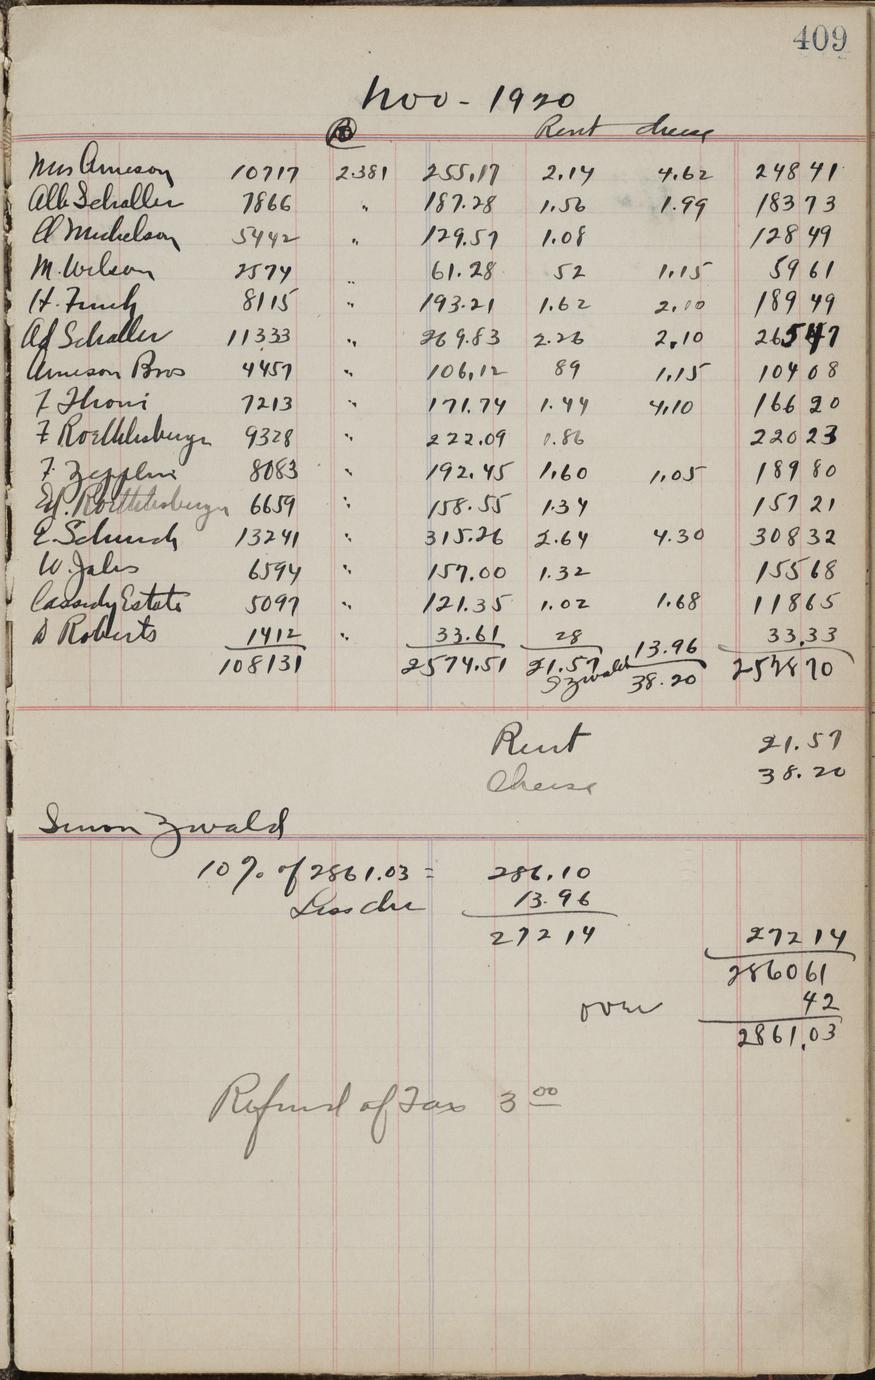 409
Nov - 1920
@ Rent cheese
Mrs Arneson 10717 2.381 255.17 2.14 4.62 248 41
Alb Schaller 7866 " 187.28 1.56 1.99 183 73
Al Michelson 5442 " 129.57 1.08 128 49
M. Wilson 2574 " 61.28 52 1.15 59 61
H. Finch 8115 " 193.21 1.62 2.10 189 49
Ad Schaller 11333 " 269.83 2.26 2.10 265 47
Arneson Bros 4457 " 106.12 89 1.15 104 08
F Thoni 7213 " 171.74 1.44 4.10 166 20
F Roethlisberger 9328 " 222.09 1.86 220 23
F. Zepplin 8083 " 192.45 1.60 1.05 189 80
Roethlisberger 6659 " 158.55 1.34 157 21
E. Schurch 13241 " 315.26 2.64 4.30 308 32
W. Jales 6594 " 157.00 1.32 155 68
Cassidy Estate 5097 " 121.35 1.02 1.68 118 65
D Roberts 1412 " 33.61 28 33.33
108131 2574.51 21.57 13.96 2528 70
S Zwald 38.20
Rent 21.57
Cheese 38.20
Simon Zwald
10% of 2861.03 = 286.10
Less che 13.96
272 14 272 14
2860 61
over 42
2861.03
Refund of Tax 3 00